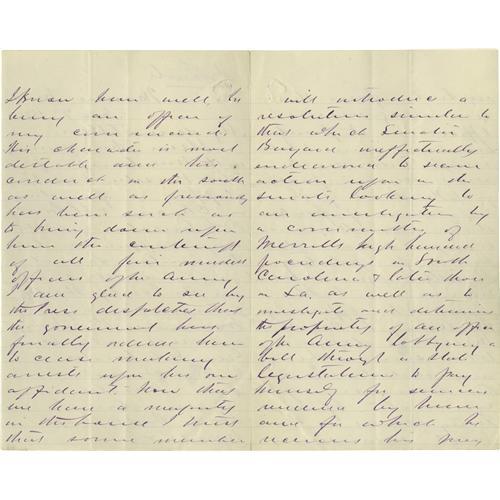 I know him well he
being an officer of
my command.
His character is most
despicable and his
conduct in the south
as well as previously
has been such as
to bring down upon
him the contempt
of all fair minded
officers of the Army
I am glad to see by
the Press dispatches that
the government has
finally ordered him
to cease making
arrests upon his own
affidavit. Now that
we have a majority
in the house I trust
that some member
will introduce a
resolution similar to
that which Senator
Bayard ineffectually
endeavored to secure
action upon in the
Senate, looking to
an investigation by
a committee of
Merrills high handed
proceedings in South
Carolina & later those
in La. as well as to
investigate and determine
the propriety of an officer
of the Army lobbying a
bill through a State
legislature to pay
himself for services
rendered by him
and for which he
receives his pay